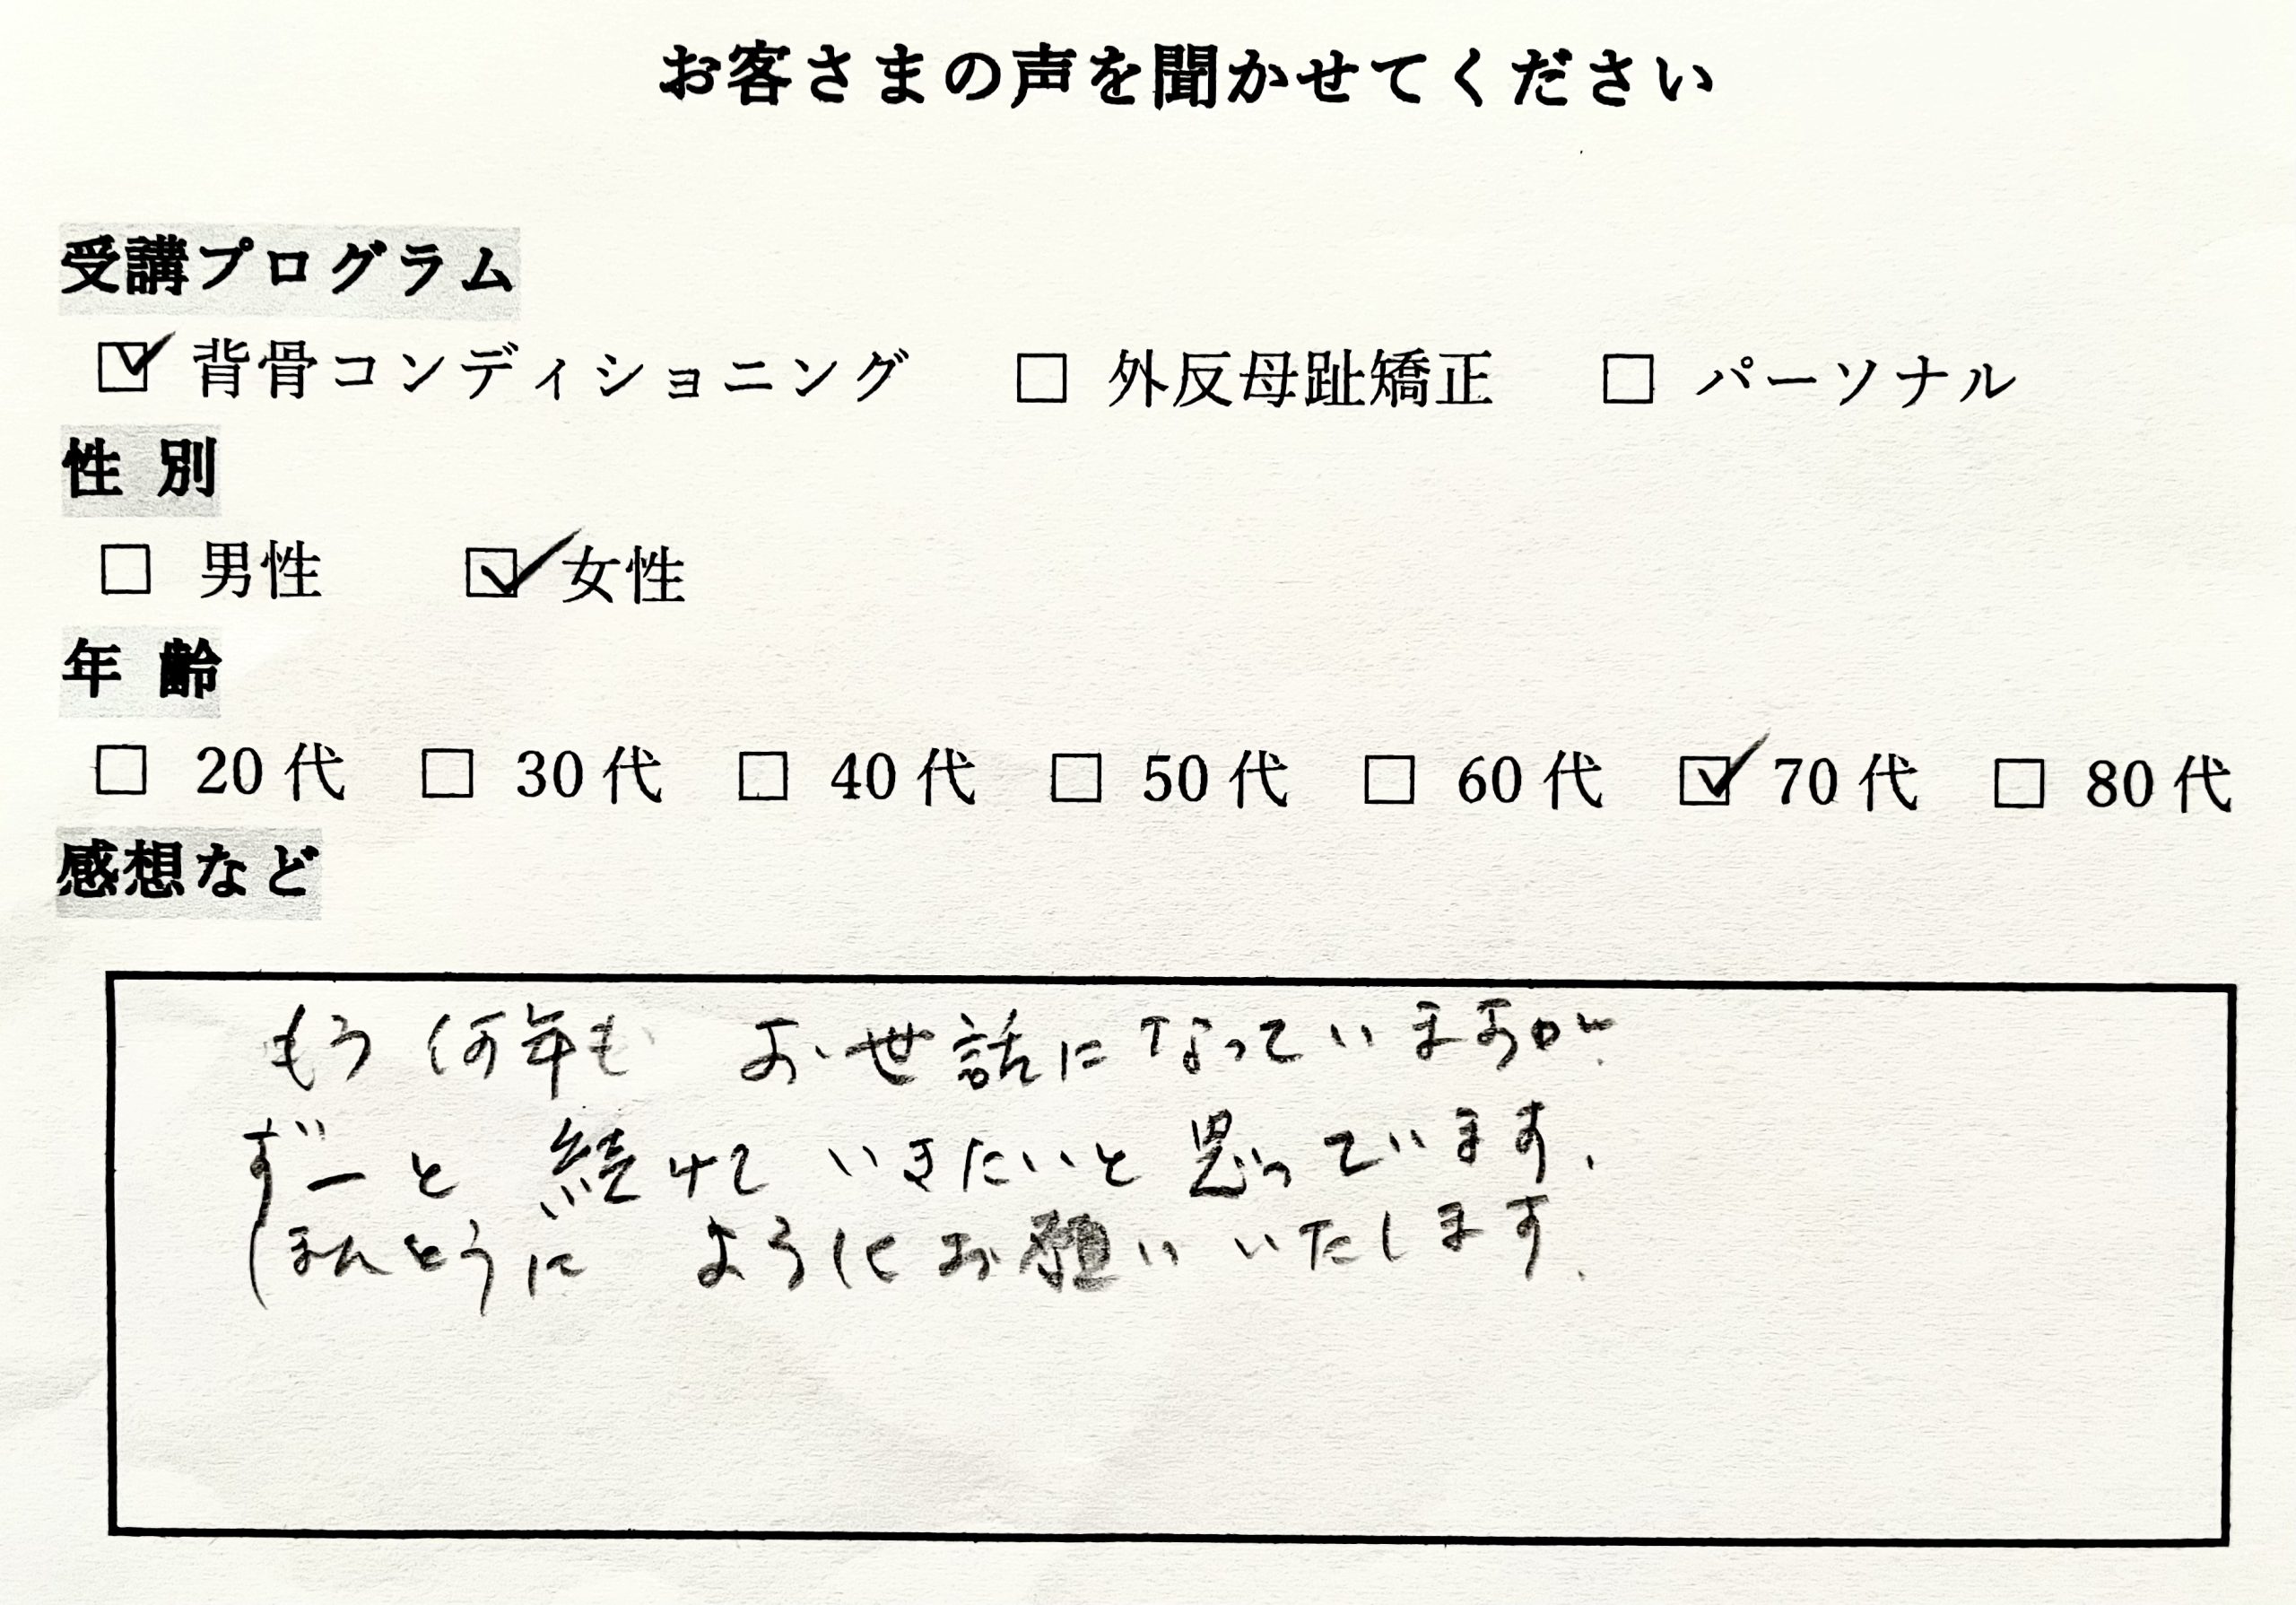 お客さまの声を聞かせてください
受講プログラム
☑ 背骨コンディショニング □ 外反母趾矯正 □ パーソナル
性 別
□ 男性 ☑ 女性
年 齢
□ 20代 □ 30代 □ 40代 □ 50代 □ 60代 ☑ 70代 □ 80代
感想など
もう何年も お世話になっていますが
ずーと 続けて いきたいと思っています.
ほんとうに ようにお願いいたします.